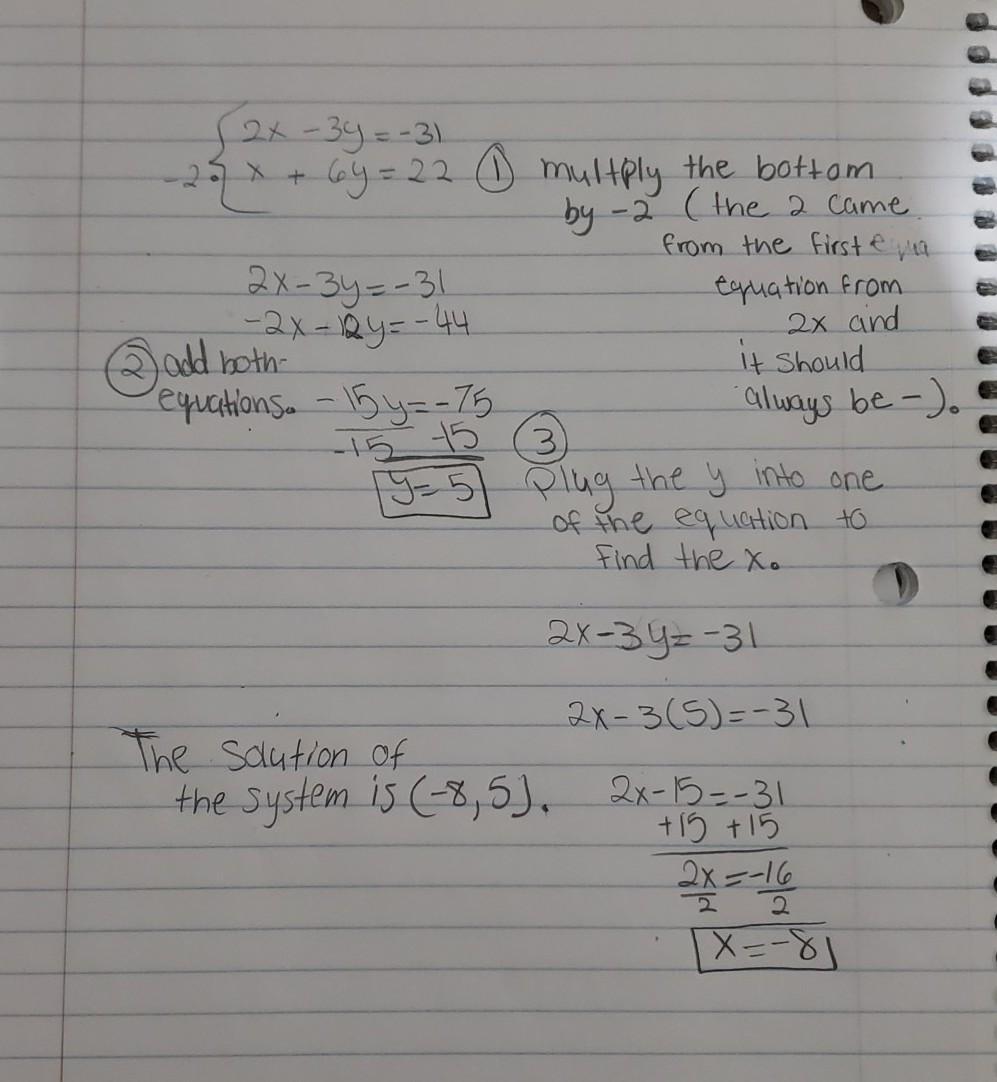 2x - 3y = -31
-2• x + 6y = 22 ① multply the bottom
by -2 (the 2 came
from the first equa
equation from
2x and
it should
always be -).
2x - 3y = -31
-2x - 12y = -44
② add both
equations. -15y = -75
-15 -15
y = 5
③
Plug the y into one
of the equation to
find the x.
2x - 3y = -31
2x - 3(5) = -31
2x - 15 = -31
+15 +15
2x = -16
2 2
x = -8
The solution of
the system is (-8, 5).